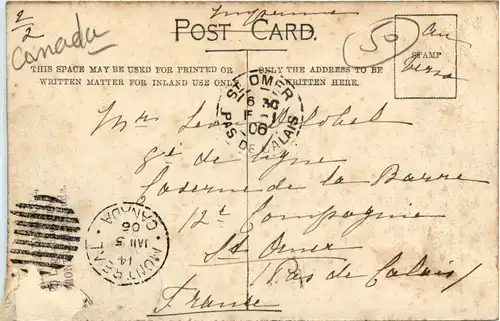 2/2
Canada
Imprimé
POST CARD.
50
au
verso
STAMP
THIS SPACE MAY BE USED FOR PRINTED OR
WRITTEN MATTER FOR INLAND USE ONLY
ONLY THE ADDRESS TO BE
WRITTEN HERE.
ST OMER
6 30
06
PAS DE CALAIS
Mr
8e de ligne
Caserne de la Barre
12e Compagnie
St Omer
Pas de Calais
France
MONTREAL
CANADA
14
JAN 5
06